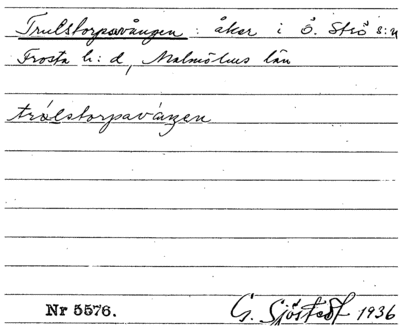 Trulstorpavången : åker i Ö. Strö s:n
Frosta h:d, Malmöhus län
trålstorpavången
Nr 5576. G. Sjöstedt 1936